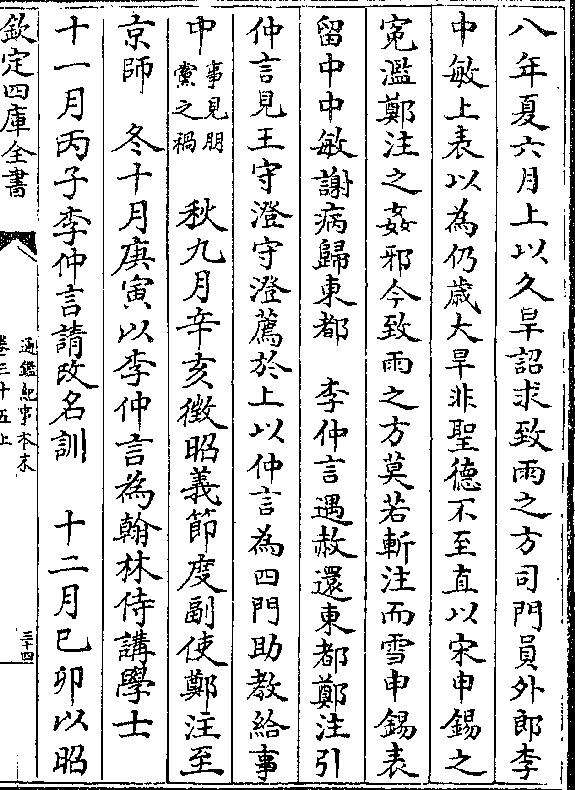 八年夏六月上以久旱詔求致雨之方司門員外郎李
中敏上表以為仍歲大旱非聖德不至直以宋申錫之
寃濫鄭注之姦邪今致雨之方莫若斬注而雪申錫表
留中中敏謝病歸東都　李仲言遇赦還東都鄭注引
仲言見王守澄守澄薦於上以仲言為四門助教給事
中事見朋黨之禍　秋九月辛亥徵昭義節度副使鄭注至
京師　冬十月庚寅以李仲言為翰林侍講學士
十一月丙子李仲言請改名訓　十二月己卯以昭
欽定四庫全書
通鑑紀事本末
卷三十五上
三十四